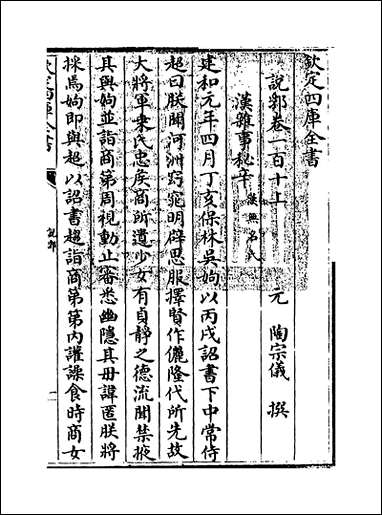 欽定四庫全書
說郛卷一百十上
元 陶宗儀 撰
漢雜事秘辛 漢無名氏
建和元年四月丁亥保林吳姁以丙戌詔書下中常侍
超曰朕聞河洲窈窕明辟思服擇賢作儷隆代所先故
大將軍乗氏忠矦商所遺少女有貞靜之德流聞禁掖
其與姁並詣商第周視動止審悉幽隱其毋諱匿朕將
採焉姁即與超以詔書趨詣商第第内讙譟食時商女
欽定四庫全書
說郛